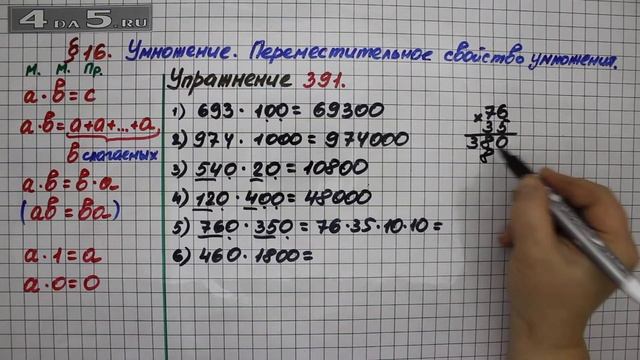 4 DA 5.RU
§16. Умножение. Переместительное свойство умножения.
м. м. Пр.
a·b=c
a·b=a+a+...+a
b слагаемых
a·b=b·a
(ab=ba)
a·1=a
a·0=0
Упражнение 391.
1) 693·100=69300
2) 974·1000=974000
3) 540·20=10800
4) 120·400=48000
5) 760·350=76·35·10·10=
6) 460·1800=
76
×
35
380
8